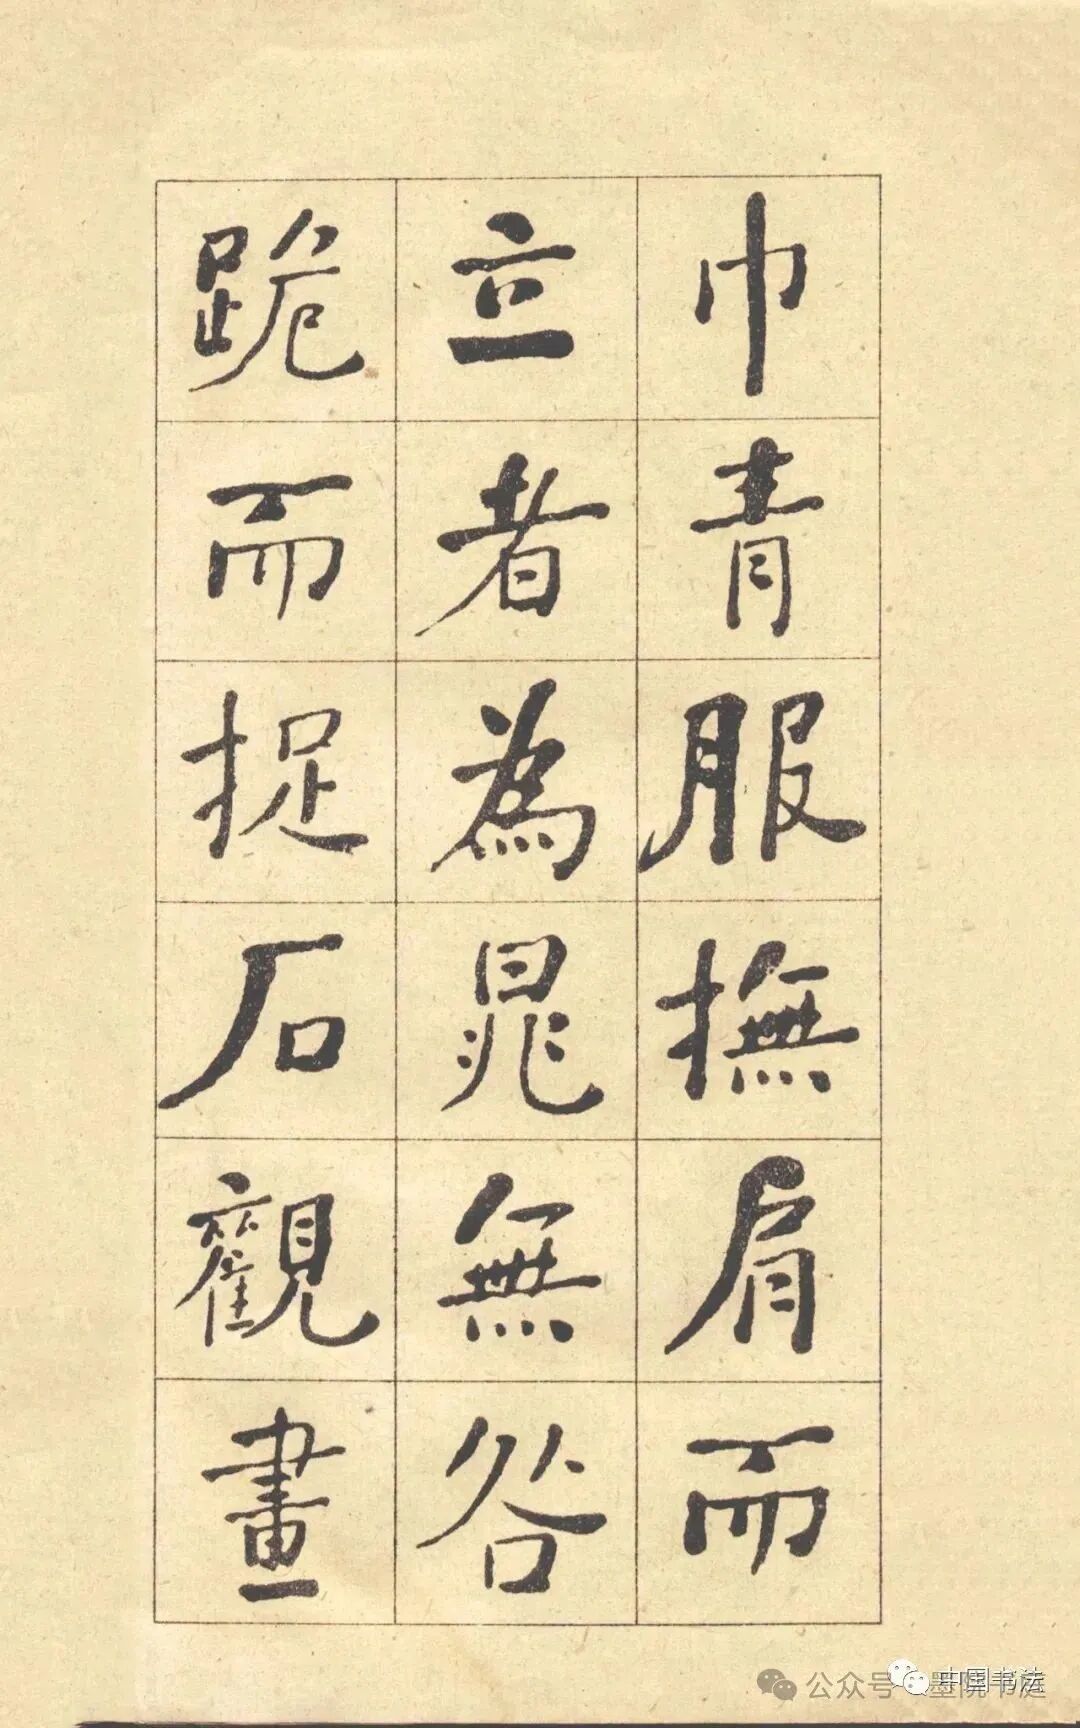 巾青服撫肩而
立者為晁無咎
跪而捉石觀畫
公众号
中国书法